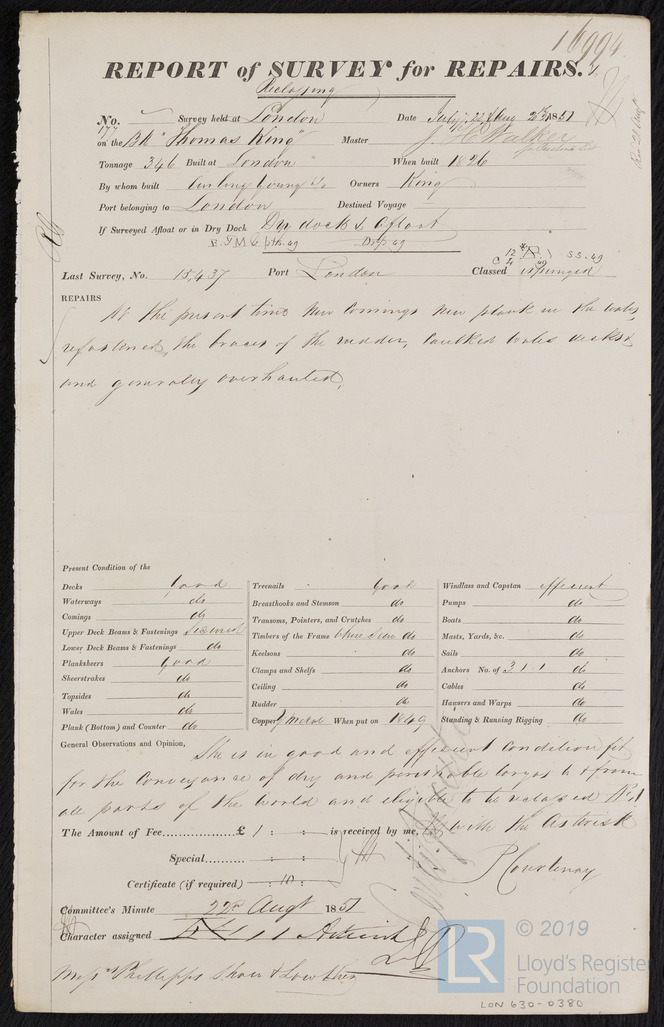 16994
REPORT of SURVEY for REPAIRS.
Reclassing
No. Survey held at London Date July 22 & Aug 1851
177
on the Bk "Thomas King" Master J. H. Walker
Tonnage 346 Built at London When built 1826
By whom built Curling Young & Co Owners King
Port belonging to London Destined Voyage
If Surveyed Afloat or in Dry Dock Dry dock & afloat
Last Survey, No. 15,437 Port London Classed expunged
REPAIRS
At the present time New Comings new plank in the wales
refastened, the braces of the rudder, caulked wales decks &
and generally overhauled,
Present Condition of the
Decks Good
Waterways do
Comings do
Upper Deck Beams & Fastenings
Lower Deck Beams & Fastenings do
Planksheers Good
Sheerstrakes do
Topsides do
Wales do
Plank (Bottom) and Counter do
Treenails Good
Breasthooks and Stemson do
Transoms, Pointers, and Crutches do
Timbers of the Frame where seen do
Keelsons do
Clamps and Shelfs do
Ceiling do
Rudder do
Copper Y Metal When put on 1849
Windlass and Capstan efficient
Pumps do
Boats do
Masts, Yards, &c. do
Sails do
Anchors No. of 3 1 1 do
Cables do
Hawsers and Warps do
Standing & Running Rigging do
General Observations and Opinion, She is in good and efficient condition fit
for the conveyance of dry and perishable cargos to & from
all parts of the World and eligible to be reclassed
with the Asterisk
The Amount of Fee £ 1 : : is received by me,
P Courtenay
Special : :
Certificate (if required) : 10 :
Committee's Minute 22nd Augt 1851
Character assigned
Messrs Phillipps Shaw & Lowther
LR © 2019
Lloyd's Register
Foundation
LON 630-0380